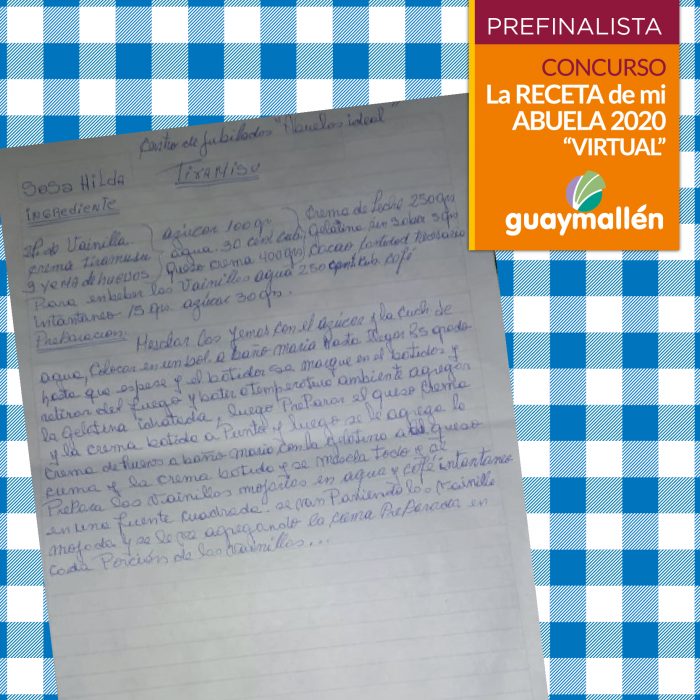 PREFINALISTA
CONCURSO
La RECETA de mi
ABUELA 2020
“VIRTUAL”
guaymallén
Centro de Jubilados "Abuelos ideal"
TIRAMISU
SOSA HILDA
INGREDIENTE
Vainilla. azúcar 100 gr Crema de Leche 250 grs
Crema Tiramusu agua. 30 cent cub. Gelatina sin Sabor 3 grs
9 yema de huevos Queso crema 400 grs Cacao cantidad Necesario
Para enbeber las Vainillas agua 250 cent cub. café
intantaneo 15 grs azúcar 30 grs.
PreParacion:
Mesclar las yemas con el azúcar y la cuch de
agua, Colocar en un bol a baño maria hasta llegar 85 grado
hasta que espese y el batidor se marque en el batidos y
retirar del fuego y batir a temperatura ambiente agregar
la Gelatina idratada, luego PreParar el queso Crema
y la crema batida a Punto y luego se le agrega la
Crema de huevos a baño maria con la gelatina al queso
crema y la crema batida y se mescla todo y al
PrePara las Vainillas mojarlas en agua y café intantaneo
en una fuente cuadrada. se van Poniendo las Vainilla
mojada y se le va agregando la crema PreParada en
cada Porción de las Vainillas...